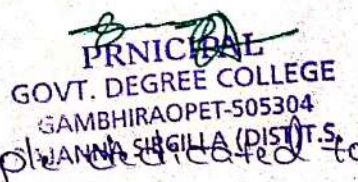 PRNICIPAL
GOVT. DEGREE COLLEGE
GAMBHIRAOPET-505304
SIRCILLA (DIST) T.S.
dedicated to